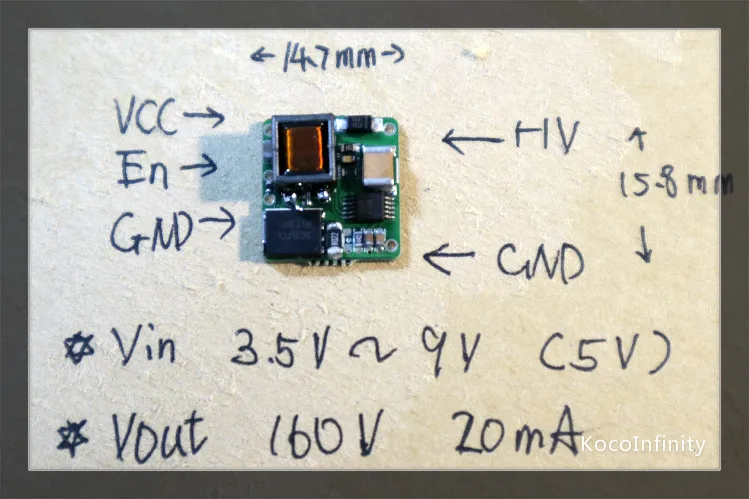 ← 14.7mm →
VCC →
← HV
En →
15.8mm
GND →
← GND
Vin 3.5V ~ 9V (5V)
Vout 160V 20mA
KocoInfinity